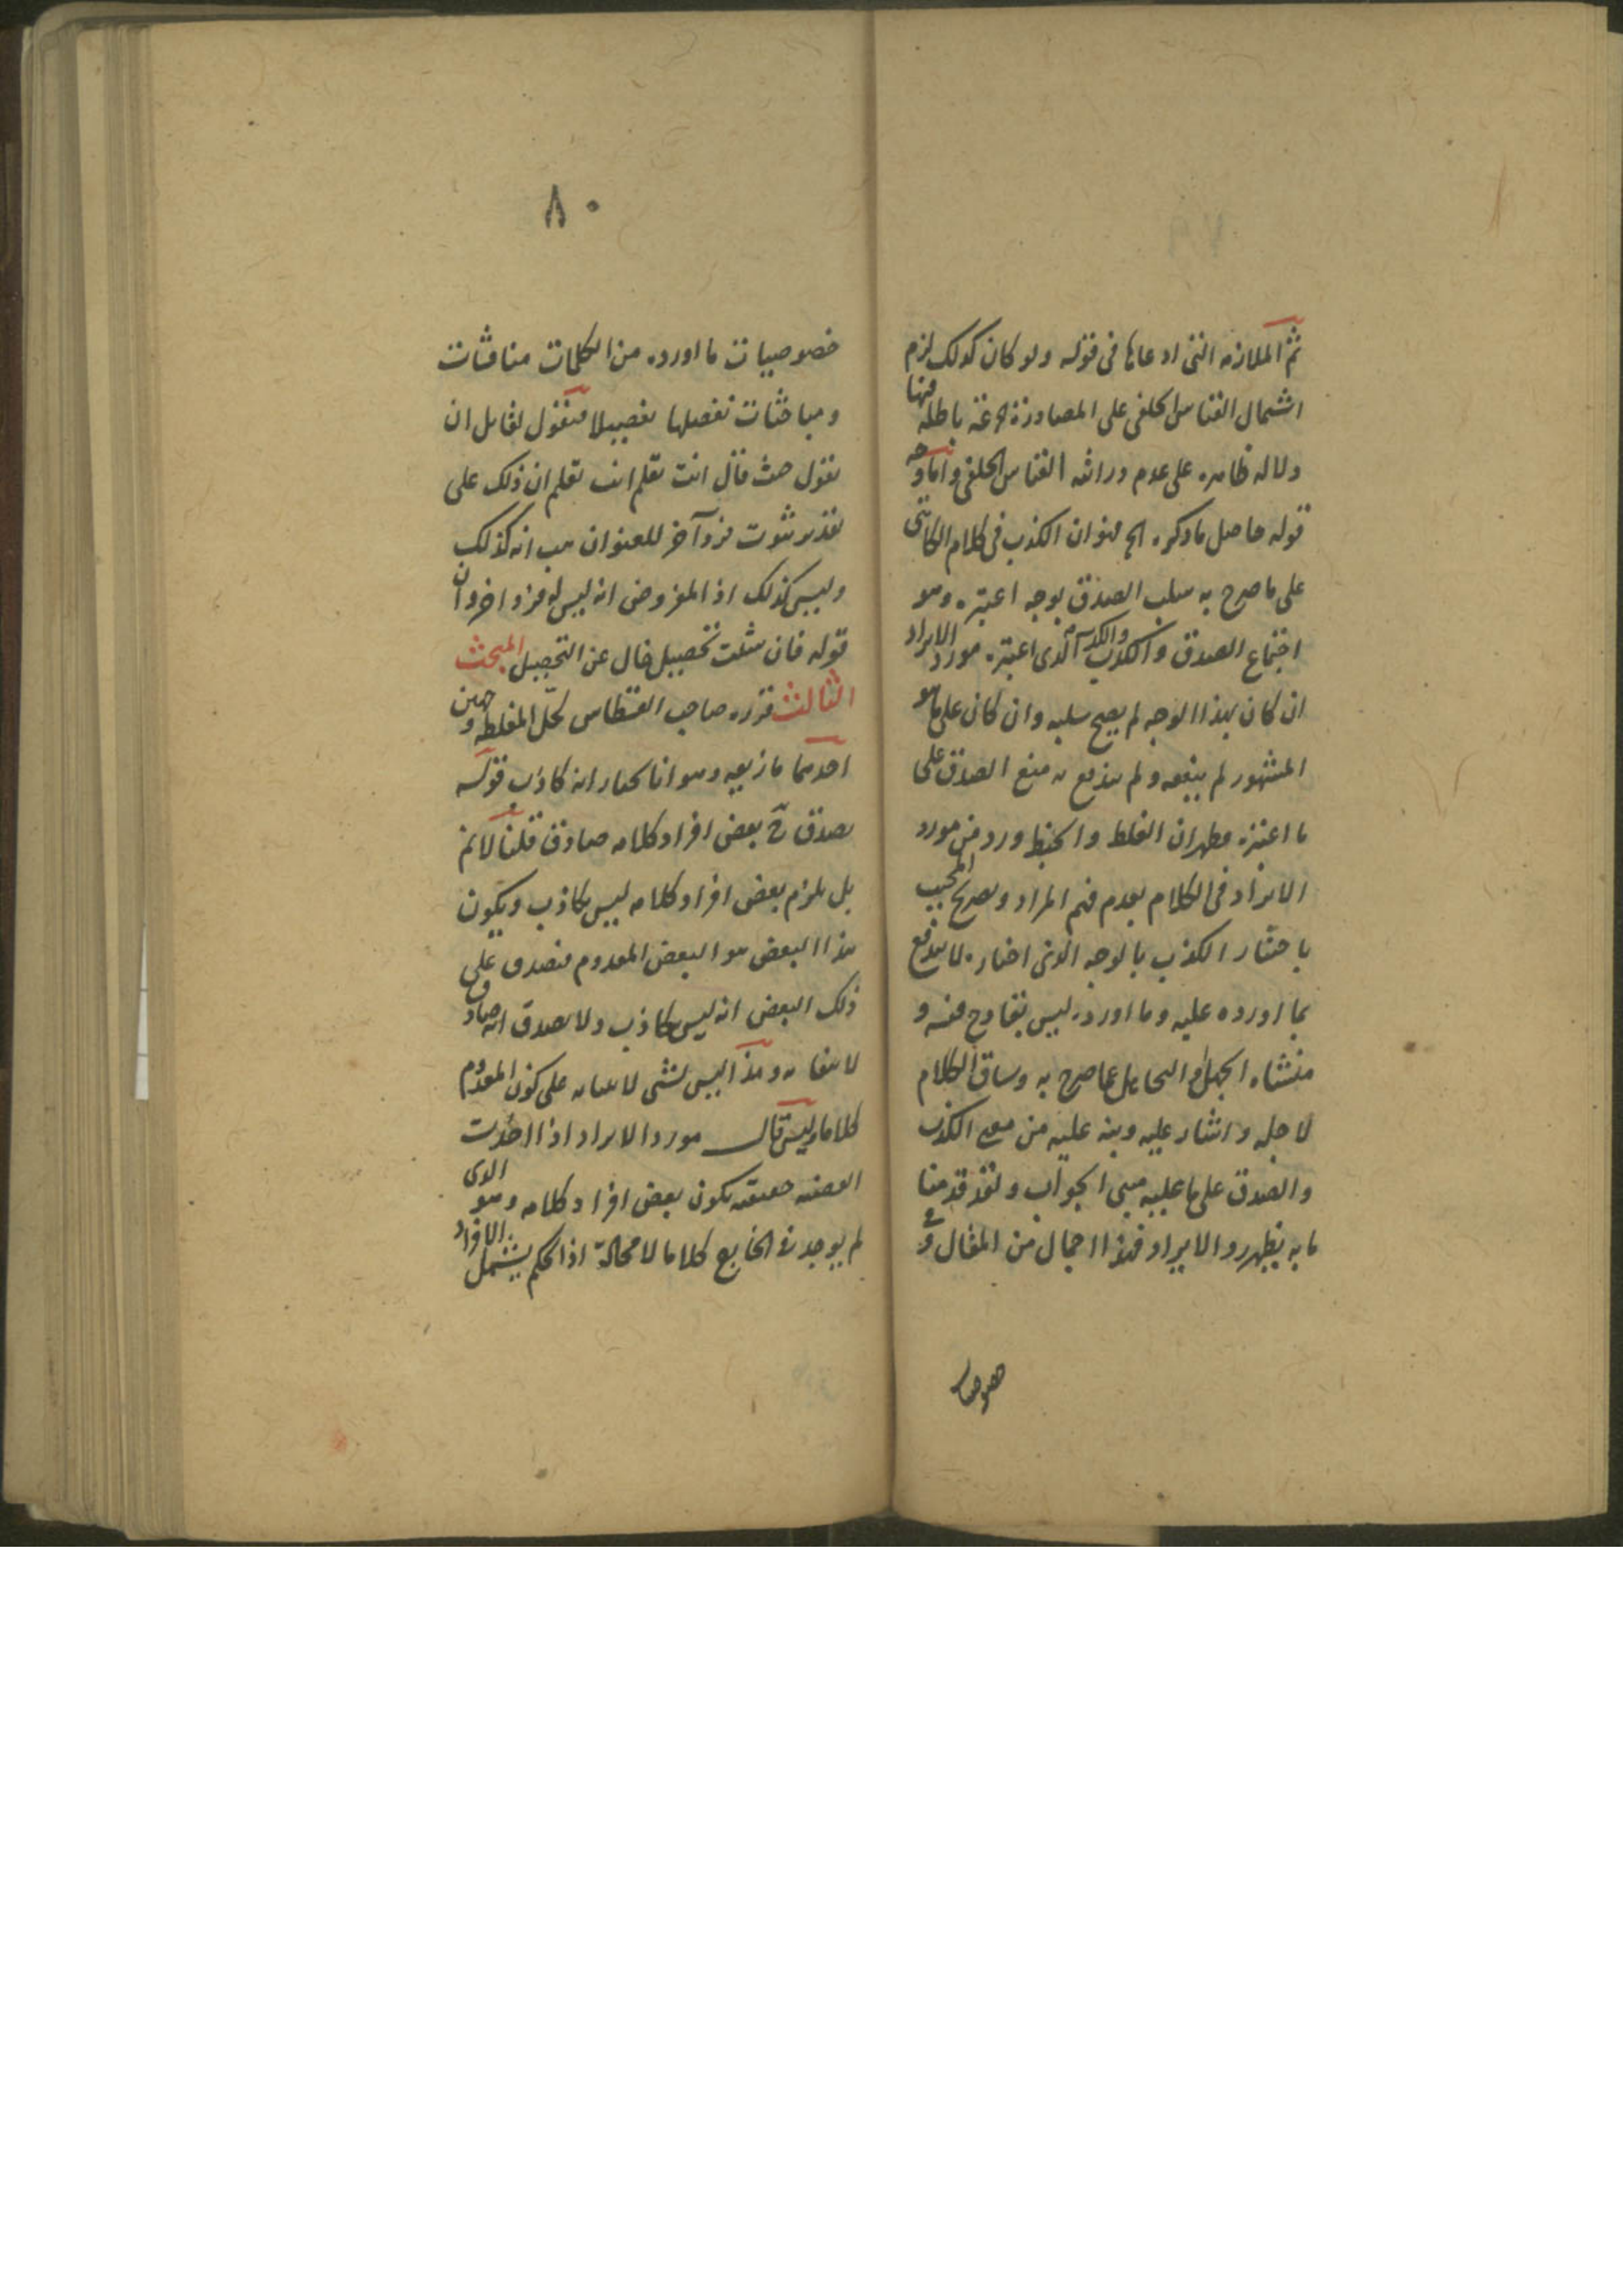 ثم الملازمة التى ادعاها فى قوله ولو كان كذلك لزم
اشتمال القياس الخلفى على المصادرة باطلة فيها
دلالة ظاهرة على عدم دراية القياس الخلفى واما
قوله حاصل ما ذكره الخ فهو ان الكذب فى كلام الكاتبى
على ما صرح به سلب الصدق بوجه اعتبره وهو
اجتماع الصدق والكذب الذى اعتبره مورد الايراد
ان كان بهذا الوجه لم يصح سلبه وان كان على ما هو
المشهور لم ينفعه ولم يندفع به منع الصدق على
ما اعتبره فظهر ان الغلط والخبط ورد من مورد
الايراد فى الكلام بعدم فهم المراد وتصريح المجيب
باختيار الكذب بالوجه الذى اختاره لا يندفع
بما اورده عليه وما اورده ليس بقادح فيه و
منشاه الجهل او التجاهل عما صرح به وساق الكلام
لاجله واشار عليه وبنه عليه من معنى الكذب
والصدق على ما عليه مبنى الجواب ولقد قدمنا
ما به يظهر رد الايراد فهذا اجمال من المقال و فى
خصوصيات
٨٠
خصوصيات ما اورده من الكلمات مناقشات
ومباحثات نفصلها تفصيلا فنقول لقايل ان
يقول حيث قال انت تعلم انت تعلم ان ذلك على
تقدير ثبوت فرد آخر للعنوان هب انه كذلك
وليس كذلك اذ المفروض انه ليس له فرد اخر وان
قوله فان شئت تحصيل خال عن التحصيل المبحث
الثالث قرره صاحب القسطاس لحل المغلطة وجهين
احدهما ما زيعه وهو انا نختار انه كاذب قوله
يصدق ح بعض افراد كلامه صادق قلنا لا نم
بل يلزم بعض افراد كلامه ليس بكاذب ويكون
هذا البعض هو البعض المعدوم فيصدق على
ذلك البعض انه ليس بكاذب ولا يصدق انه صادق
لانتفائه وهذا ليس بشى لابتنائه على كون المعدوم
كلاما وليس قال مورد الايراد اذا اخذت
القضية حقيقية يكون بعض افراد كلامه وهو الذى
لم يوجد فى الخارج كلاما لا محالة اذ الحكم يشمل الافراد